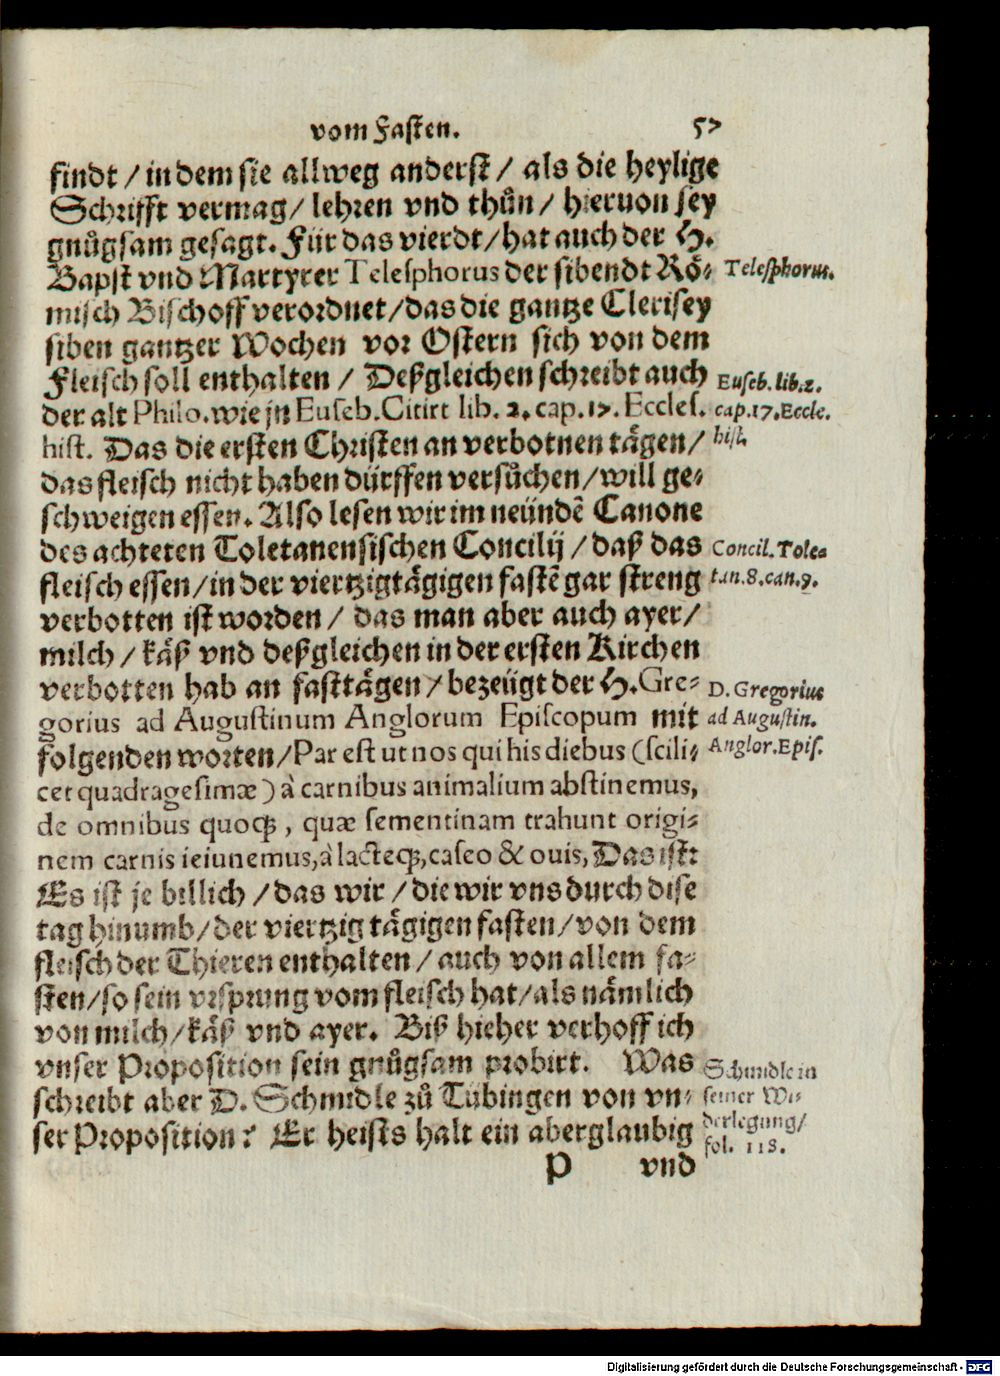 vom Fasten. 57
findt / in dem sie allweg anderst / als die heylige
Schrifft vermag / lehren vnd thůn / hieruon sey
gnůgsam gesagt. Für das vierdt / hat auch der H.
Bapst vnd Martyrer Telesphorus der sibendt Rö-
misch Bischoff verordnet / das die gantze Clerisey
siben gantzer Wochen vor Ostern sich von dem
Fleisch soll enthalten / Deßgleichen schreibt auch
der alt Philo. wie jn Euseb. Citirt lib. 2. cap. 17. Eccles.
hist. Das die ersten Christen an verbotnen tägen /
das fleisch nicht haben dürffen versůchen / will ge-
schweigen essen. Also lesen wir im neündẽ Canone
des achteten Toletanensischen Concilij / daß das
fleisch essen / in der viertzigtägigen fastẽ gar streng
verbotten ist worden / das man aber auch ayer /
milch / käß vnd deßgleichen in der ersten Kirchen
verbotten hab an fasttägen / bezeügt der H. Gre-
gorius ad Augustinum Anglorum Episcopum mit
folgenden worten / Par est ut nos qui his diebus (scili-
cet quadragesimæ) à carnibus animalium abstinemus,
de omnibus quoqꝫ, quæ sementinam trahunt origi-
nem carnis ieiunemus, à lacteqꝫ, caseo & ouis, Das ist:
Es ist je billich / das wir / die wir vns durch dise
tag hinumb / der viertzig tägigen fasten / von dem
fleisch der Thieren enthalten / auch von allem fa-
sten / so sein vrsprung vom fleisch hat / als nämlich
von milch / käß vnd ayer. Biß hieher verhoff ich
vnser Proposition sein gnůgsam probirt. Was
schreibt aber D. Schmidle zů Tübingen von vn-
ser Proposition? Er heists halt ein aberglaubig
P vnd
Telesphorus.
Euseb. lib. 2.
cap. 17. Eccle.
hist.
Concil. Tole-
tan. 8. can. 9.
D. Gregorius
ad Augustin.
Anglor. Epis.
Schmidle in
seiner Wi-
derlegung /
fol. 118.
Digitalisierung gefördert durch die Deutsche Forschungsgemeinschaft - DFG